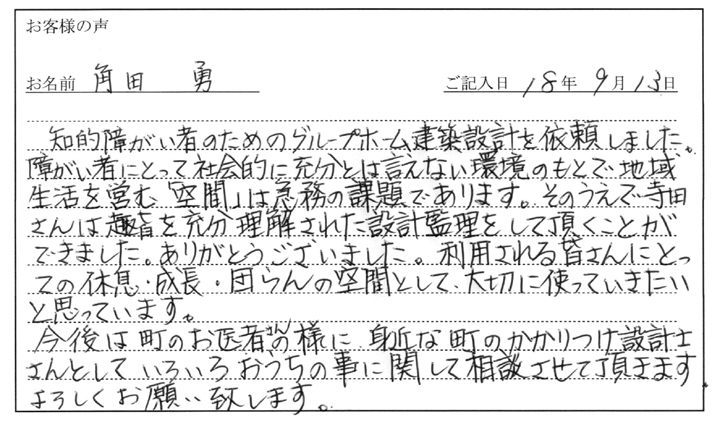 お客様の声
お名前 角田 勇 ご記入日 18年 9月 13日
知的障がい者のためのグループホーム建築設計を依頼しました。
障がい者にとって社会的に充分とは言えない環境のもとで地域
生活を営む「空間」は急務の課題であります。そのうえで寺田
さんは趣旨を充分理解された設計監理をして頂くことが
できました。ありがとうございました。利用される皆さんにとっ
ての休息・成長・団らんの空間として、大切に使っていきたい
と思っています。
今後は町のお医者さんの様に身近な町のかかりつけ設計士
さんとしていろいろおうちの事に関して相談させて頂きます
よろしくお願い致します。